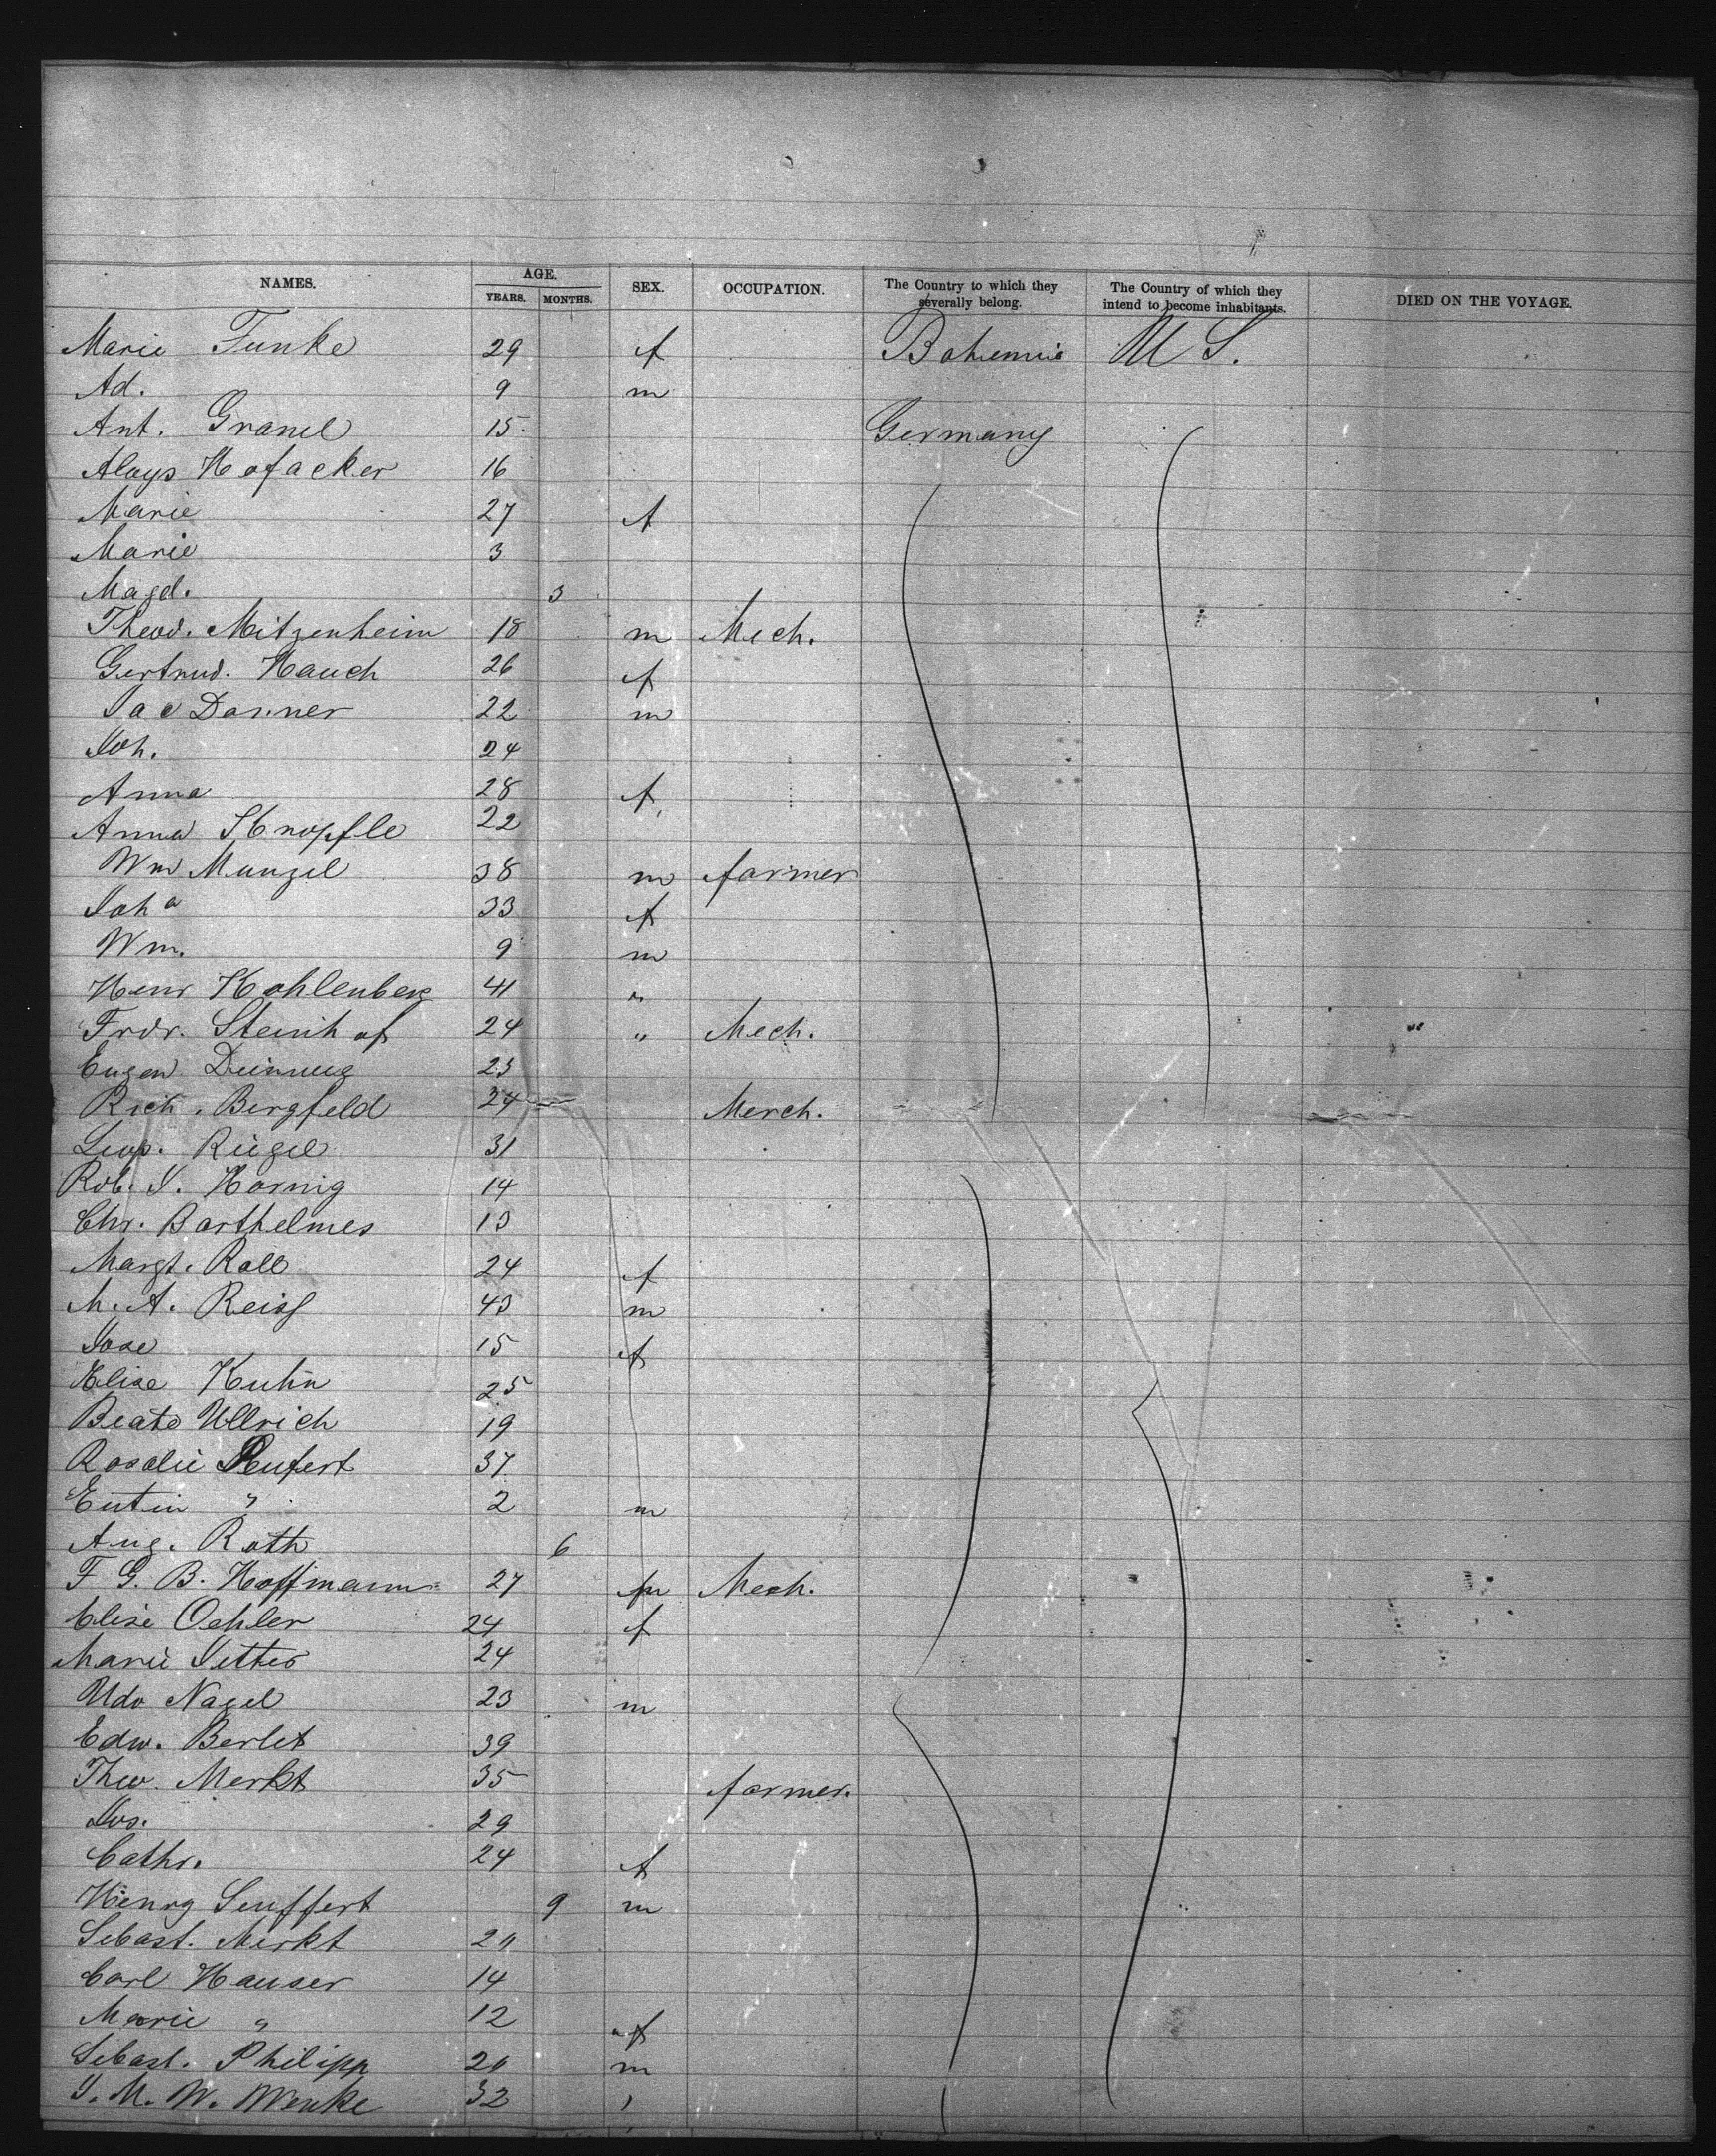 NAMES. AGE. SEX. OCCUPATION. The Country to which they severally belong. The Country of which they intend to become inhabitants. DIED ON THE VOYAGE.
YEARS. MONTHS.
Marie Funke 29 f Bohemia U S.
Ad. 9 m
Ant. Granel 15 Germany
Aloys Hofacker 16
Marie 27 f
Marie 3
Magd. 3
Theod. Mitzenheim 18 m Mech.
Gertrud. Hauch 26 f
Jac Danner 22 m
Joh. 24
Anna 28 f
Anna Knopfle 22
Wm Munzel 38 m farmer
Joha 33 f
Wm. 9 m
Henr Kohlenberg 41 "
Frdr. Steinhof 24 " Mech.
Eugen 23
Rich. Bergfeld 24 Merch.
Leop. Riegel 31
Rob. J. Hornig 14
Chr. Barthelmes 13
Margt. Roll 24 f
M. A. Reiss 43 m
Jose 15 f
Elise Kuhn 25
Beate Ullrich 19
Rosalie Seufert 37
" 2 m
Aug. Roth 6
F G. B. Hoffmann 27 m Mech.
Elise Oehler 24 f
Marie 24
Udo Nagel 23 m
Edw. Berlet 39
Theo. Merkt 35 farmer.
Jos. 29
Cathr. 24 f
Henry Seuffert 9 m
Sebast. Merkt
Carl Hauser 14
Marie " 12 f
Sebast. Philipp m
J. M. W. Wenke 32